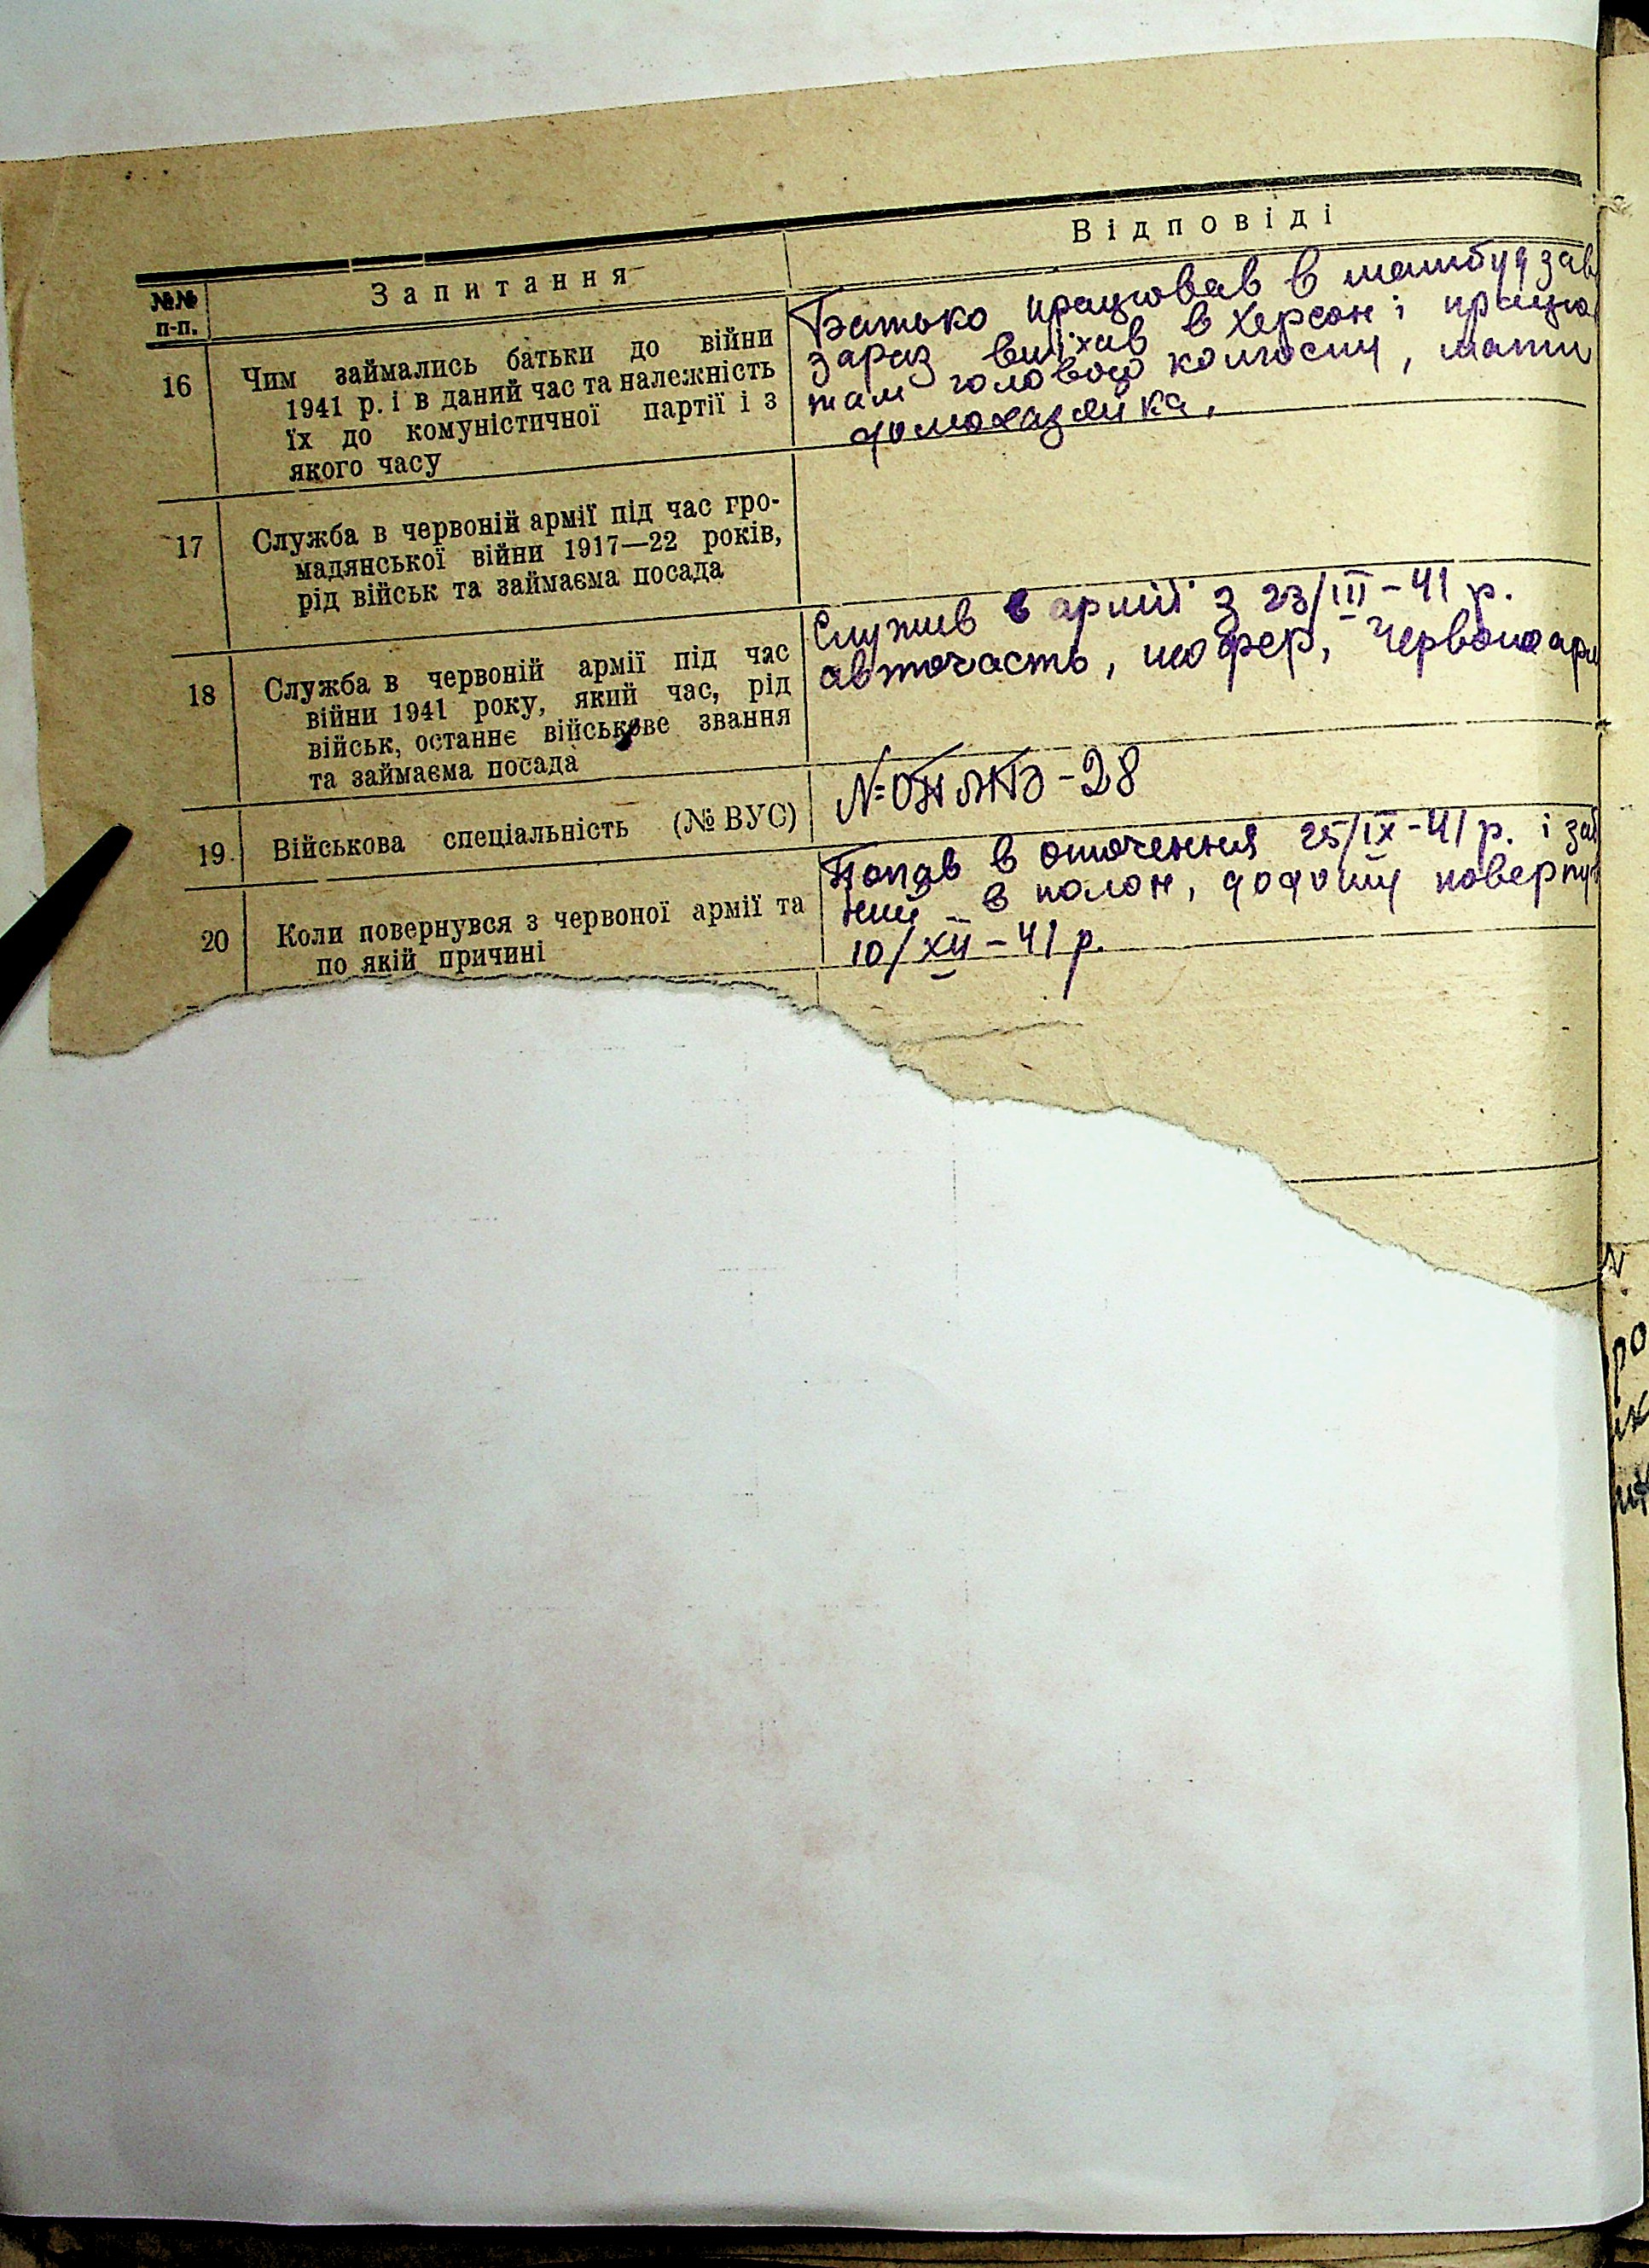 №№ п-п.
Запитання
Відповіді
16
Чим займались батьки до війни
1941 р. і в даний час та належність
їх до комуністичної партії і з
якого часу
Батько працював в машбудзав
зараз виїхав в Херсон і працю
там головою колгоспу, мати
домохазяйка.
17
Служба в червоній армії під час гро-
мадянської війни 1917—22 років,
рід військ та займаєма посада
18
Служба в червоній армії під час
війни 1941 року, який час, рід
військ, останнє військове звання
та займаєма посада
Служив в армії з 23/III-41 р.
авточасть, шофер, червоноарм
19.
Військова спеціальність (№ ВУС)
-28
20
Коли повернувся з червоної армії та
по якій причині
Попав в оточення 25/IX-41 р. і заб
ний в полон, додому поверну
10/XII-41 р.